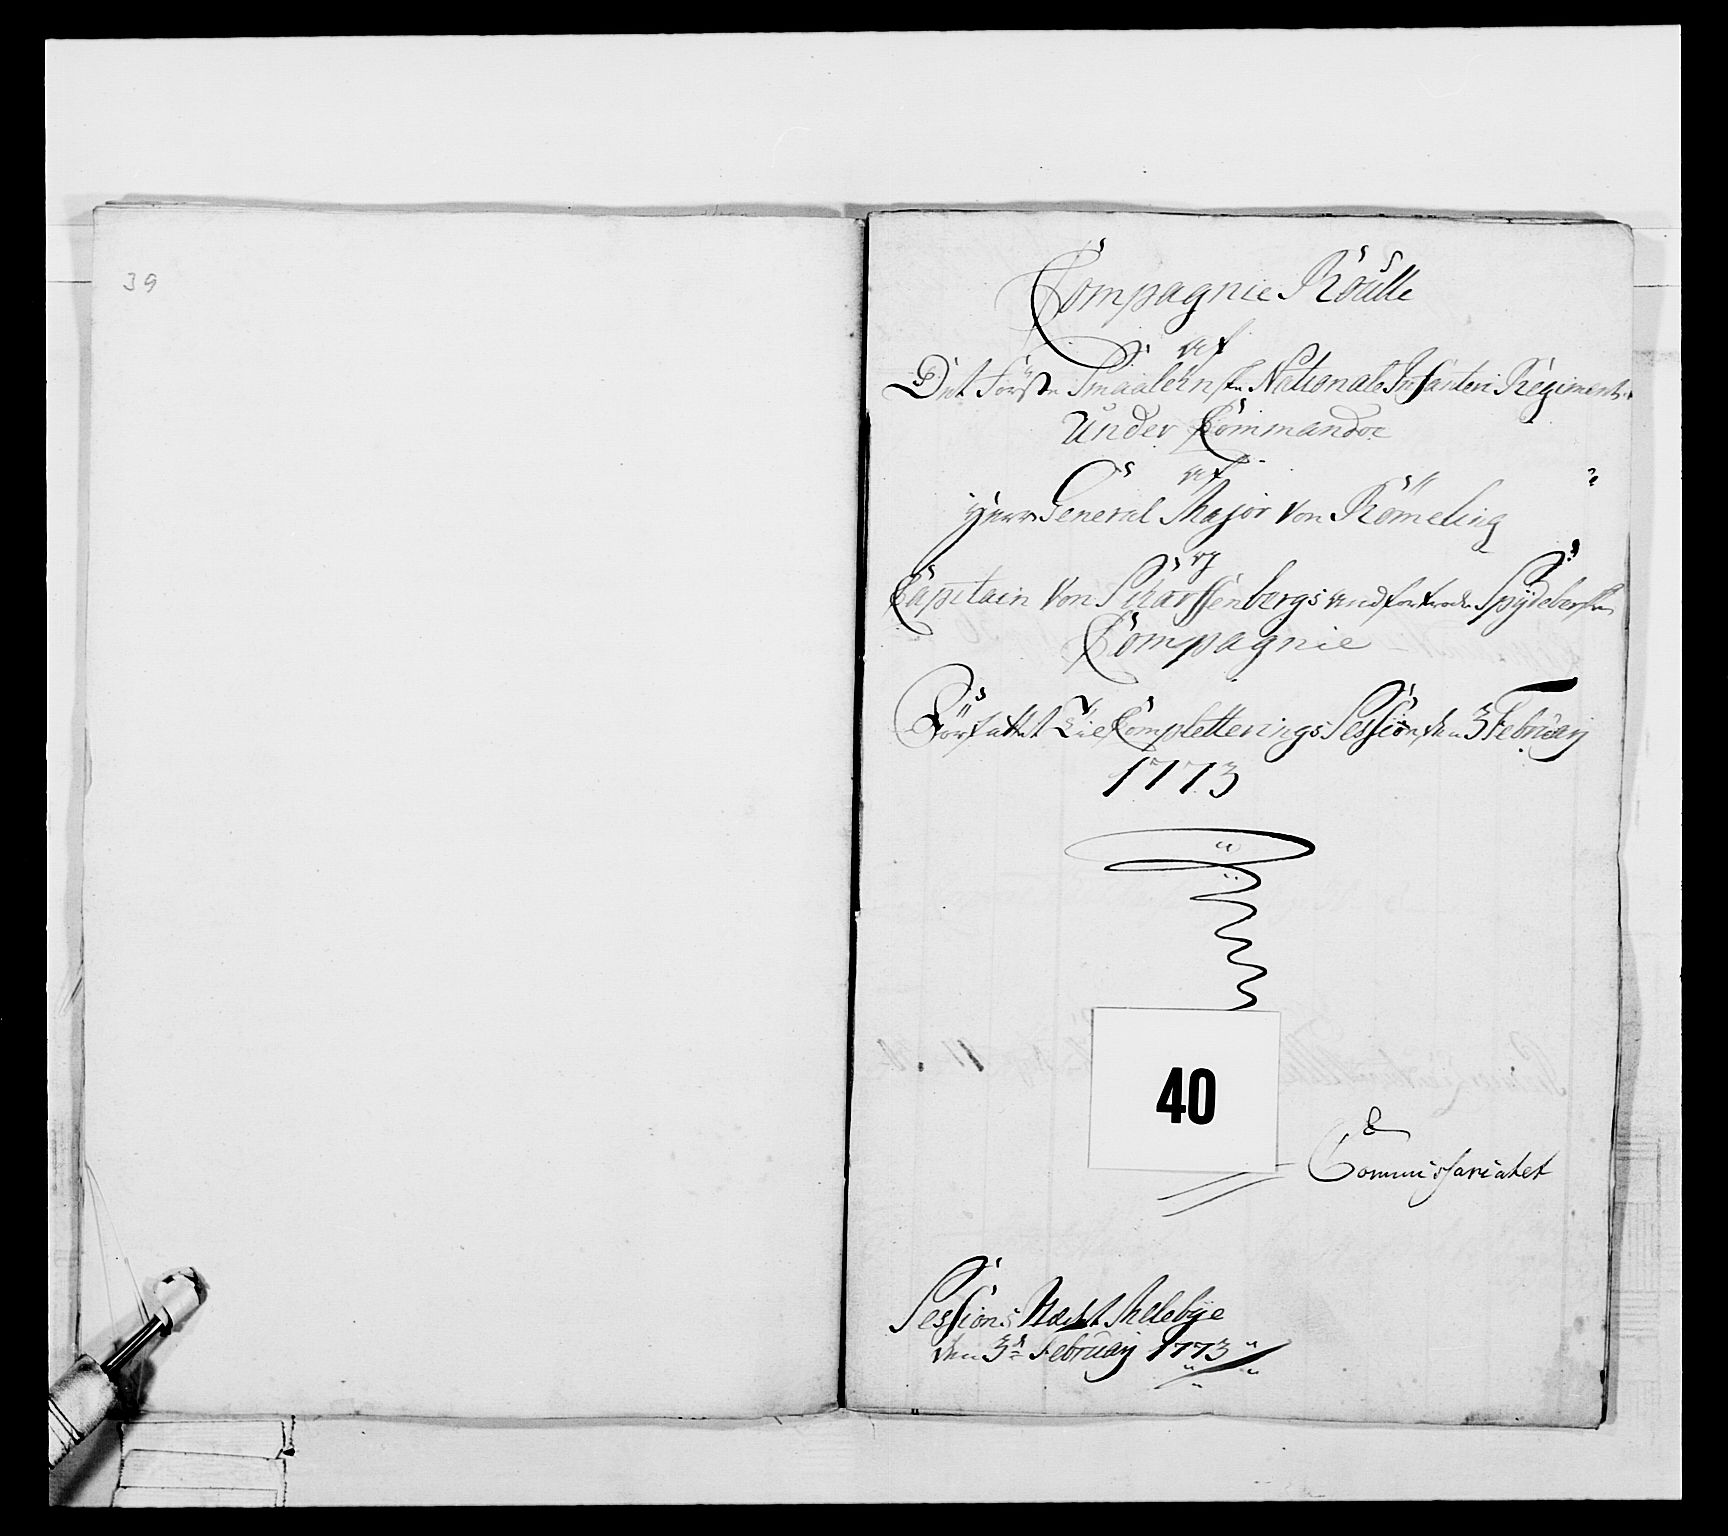 39
Compagnie Roulle
af
Det Förste Smaalehnske Nationale Infanteri Regiment
Under Commando
af
Herr General Major von Römeling
og
Capitain von Scharffenbergs Spydebergske
Compagnie
Forfattet Ved Completterings Session den 3 Februarij
1773
40
Commissariatet
Sessions Mellebye
den 3de Februarij 1773